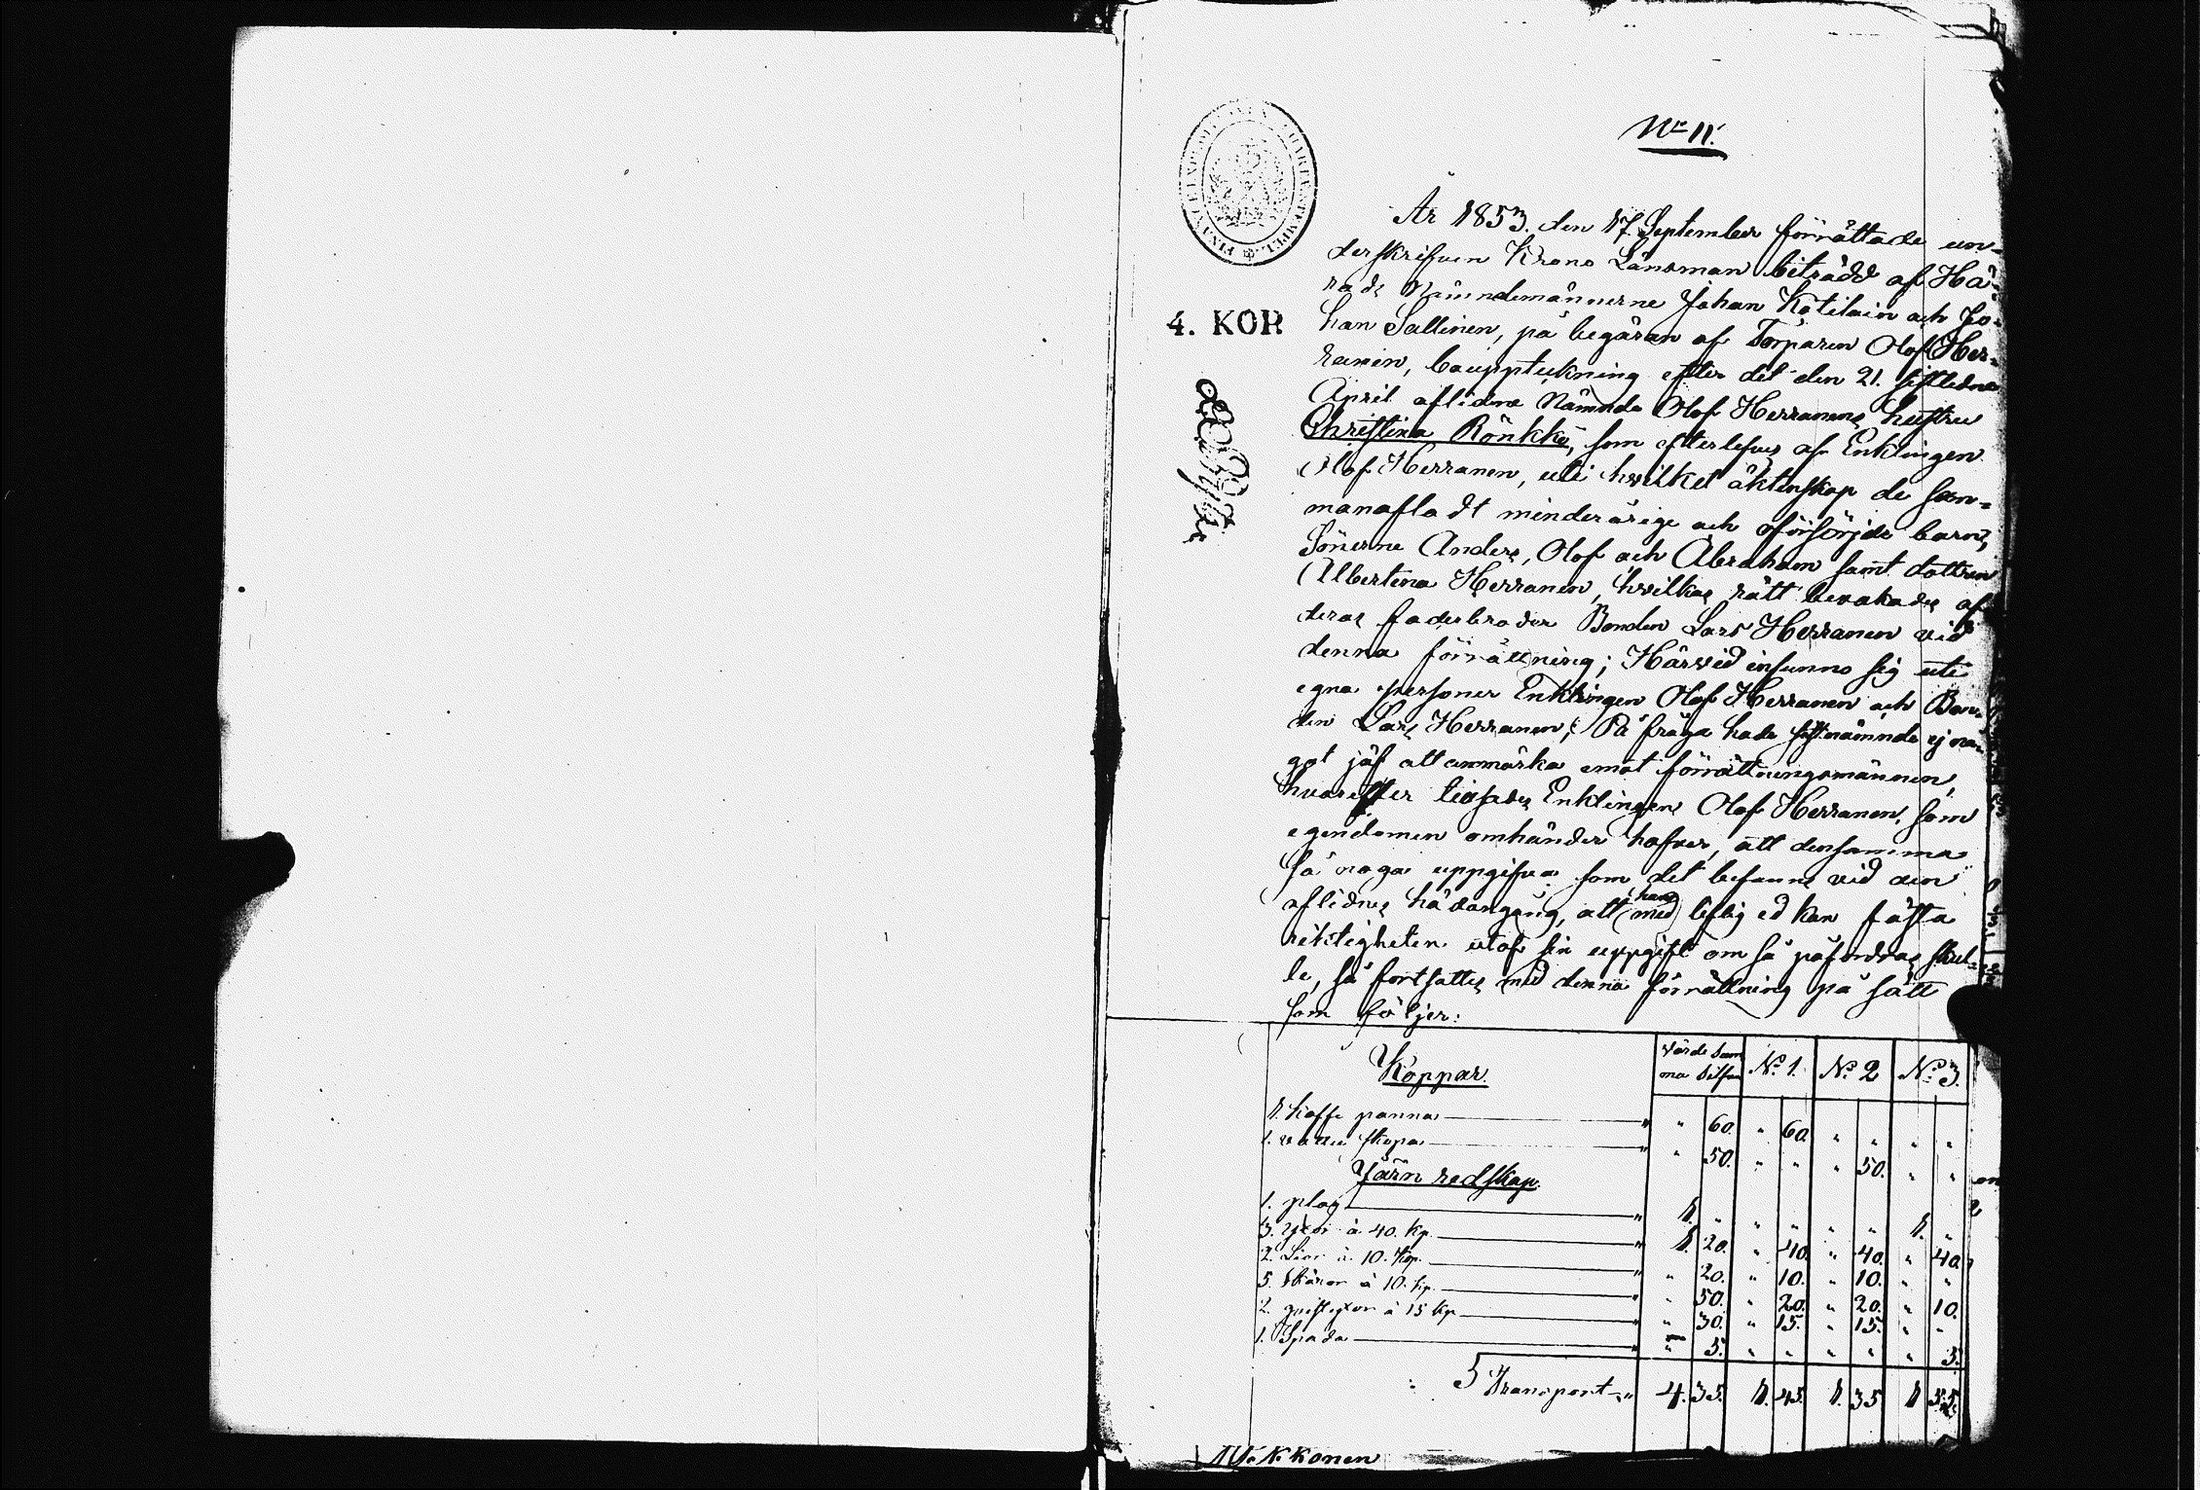 Nr 11.
År 1853. den 17. September förrättade un-
derskrifven Krono Länsman biträdd af Hä-
rads Nämndemännerne Johan Kotilain och Jo-
han Sallinen, på begäran af Torparen Olof Her-
ranen, bouppteckning efter det den 21. sistledne
April aflidne Nämnde Olof Herranens hustru
Christina Rönkkö, som efterlefves af Enklingen
Olof Herranen, uti hvilket äktenskap de sam-
manafladt minderårige och oförsörjde barn,
Sönerne Anders, Olof och Abraham samt dottren
Albertina Herranen, hvilkas rätt bevakades af
deras faderbroder Bonden Lars Herranen vid
denna förrättning; Härvid infunno sig uti
egna personer Enklingen Olof Herranen och Bon-
den Lars Herranen; På fråga hade sistnämnde ej nå-
got jäf att anmärka emot förrättningsmännen,
hvarefter Enklingen Olof Herranen, som
egendomen omhänder hafver, att densamma
så noga uppgifva som det befanns vid den
aflidnes hädangång, att han med liflig ed kan fästa
riktigheten utaf sin uppgift om så påfordras skul-
le, så fortsattes med denna förrättning på sätt
som följer:
4. KOP
Koppar. Värde Sum
ma Silfver No 1. No 2 No 3.
1. kaffe panna " " 60. " 60. " " " "
1. skopa " " 50. " " " 50. " "
Järn redskap.
1. plog " 1. " " " " " 1. "
3. yxor à 40. kp. " 1. 20. " 40. " 40. " 40.
2. Liar à 10. kop. " " 20. " 10. " 10. " "
5. skäror à 10. kp. " " 50. " 20. " 20. " 10.
2. à 15 kp " " 30. " 15. " 15. " "
1. Spada " " 5. " " " " " 5.
Transport " 4. 35. 1. 45. 1. 35 1 55.